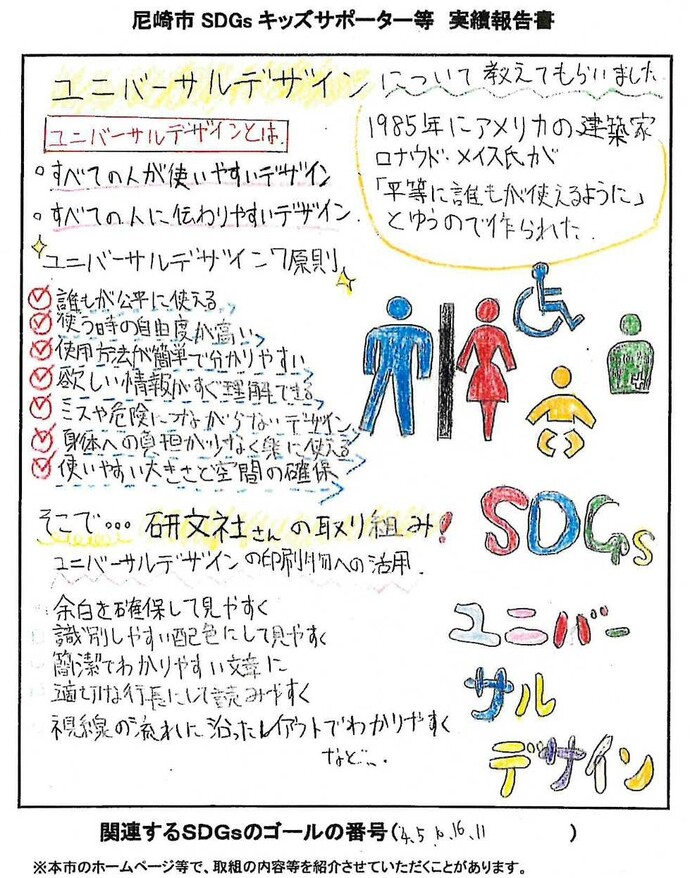 尼崎市 SDGs キッズサポーター等　実績報告書
ユニバーサルデザインについて教えてもらいました
ユニバーサルデザインとは
。すべての人が使いやすいデザイン
。すべての人に伝わりやすいデザイン
1985年にアメリカの建築家
ロナウド・メイス氏が
「平等に誰もが使えるように」
とゆうので作られた.
ユニバーサルデザイン7原則
誰もが公平に使える
使う時の自由度が高い
使用方法が簡単で分かりやすい
欲しい情報がすぐ理解できる
ミスや危険につながらないデザイン
身体への負担が少なく楽に使える
使いやすい大きさと空間の確保
そこで… 研文社さんの取り組み!
ユニバーサルデザインの印刷物への活用.
余白を確保して見やすく
識別しやすい配色にして見やすく
簡潔でわかりやすい文章に
適切な行長にして読みやすく
視線の流れに沿ったレイアウトでわかりやすく
など….
SDGs
ユニバー
サル
デザイン
関連するSDGsのゴールの番号( 4.5.10.16.11 )
※本市のホームページ等で、取組の内容等を紹介させていただくことがあります。